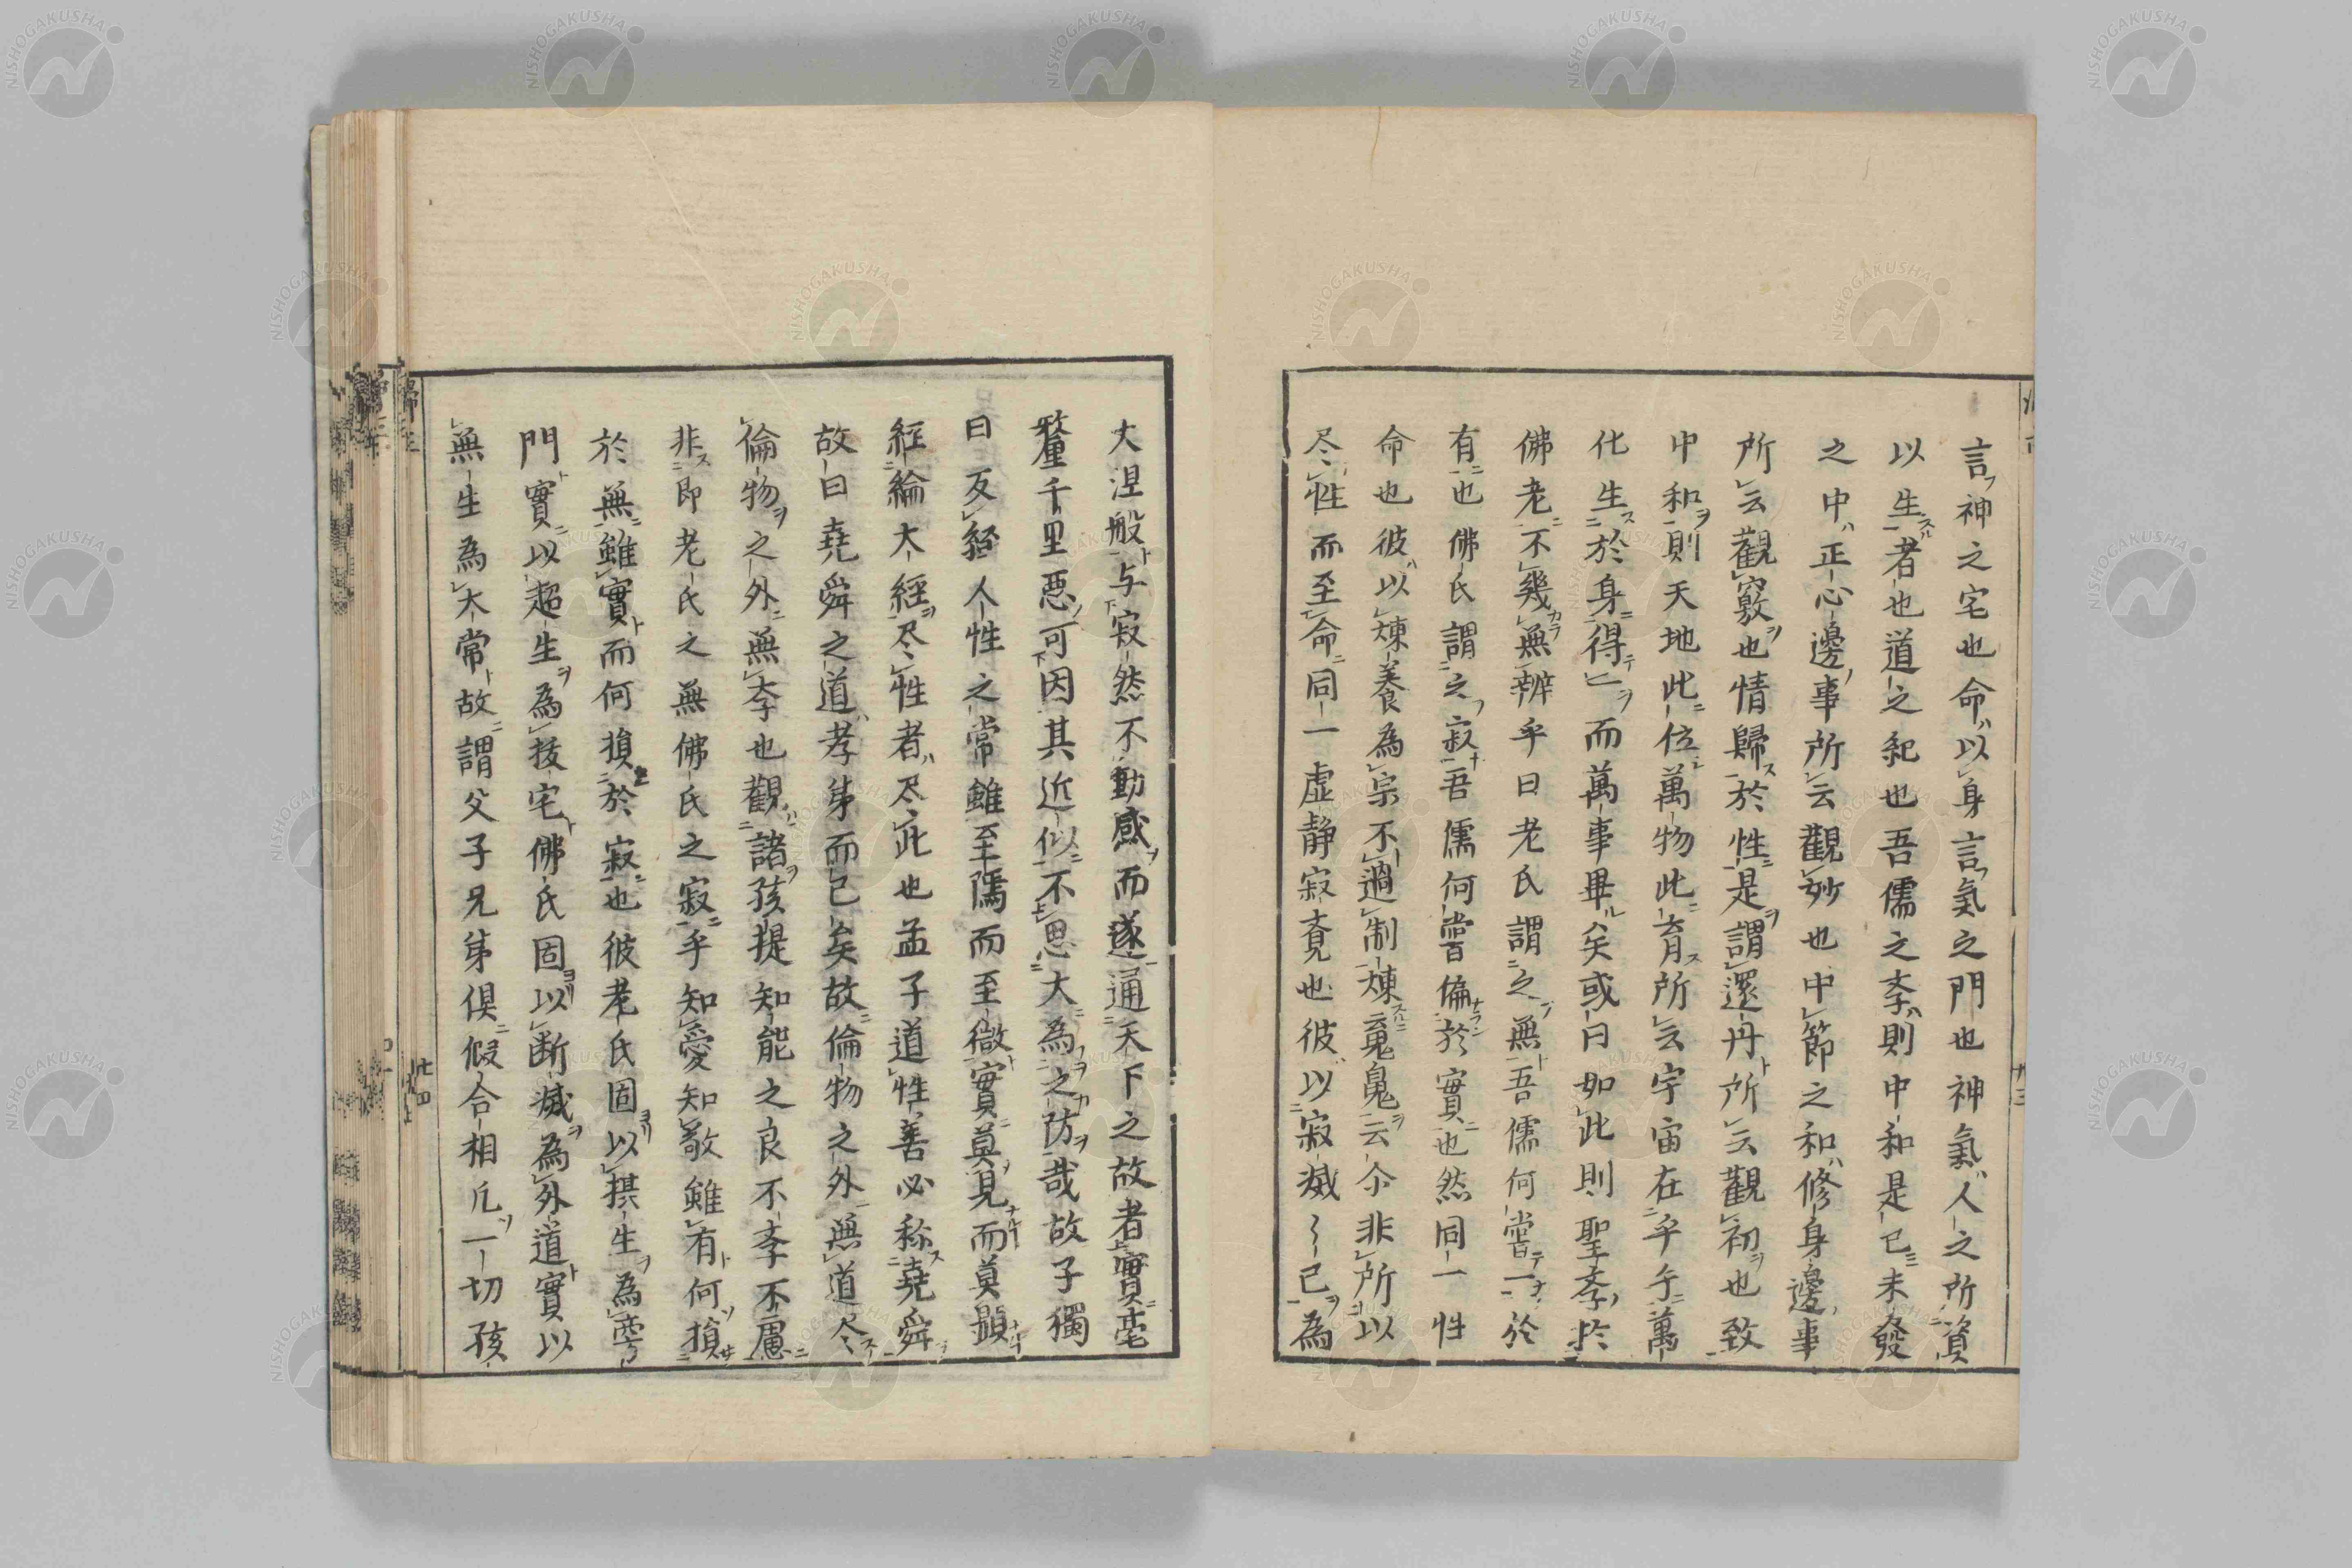 言神之宅也命以身言氣之門也神氣人之所資
以生者也道之紀也吾儒之斈則中和是已未發
之中正心邊事所云觀妙也中節之和修身邊事
所云觀竅也情歸於性是謂還丹所云觀初也致
中和則天地此位萬物此育所云宇宙在乎手萬
化生於身得一而萬事畢矣或曰如此則聖斈於
佛老不幾無辨乎曰老氏謂之無吾儒何嘗一於
有也佛氏謂之寂吾儒何嘗偏於實也然同一性
命也彼以煉養為宗不過制煉䰟鬼云尒非所以
尽性而至命同一虚静寂竟也彼以寂滅〻已為
大涅般与寂然不動感而遂通天下之故者實毫
釐千里惡可因其近似不思大為之防哉故子獨
曰反經人性之常雖至隱而至微實莫見而莫顕
経綸大經尽性者尽此也孟子道性善必称堯舜
故曰堯舜之道孝弟而已矣故倫物之外無道尽
倫物之外無斈也觀諸孩提知能之良不斈不慮
非即老氏之無佛氏之寂乎知愛知敬雖有何損
於無雖實而何損於寂也彼老氏固以拱生為專
門實以超生為拔宅佛氏固以断滅為外道實以
無生為大常故謂父子兄弟俱假合相凢一切孩
歸
廿四
NISHOGAKUSHA